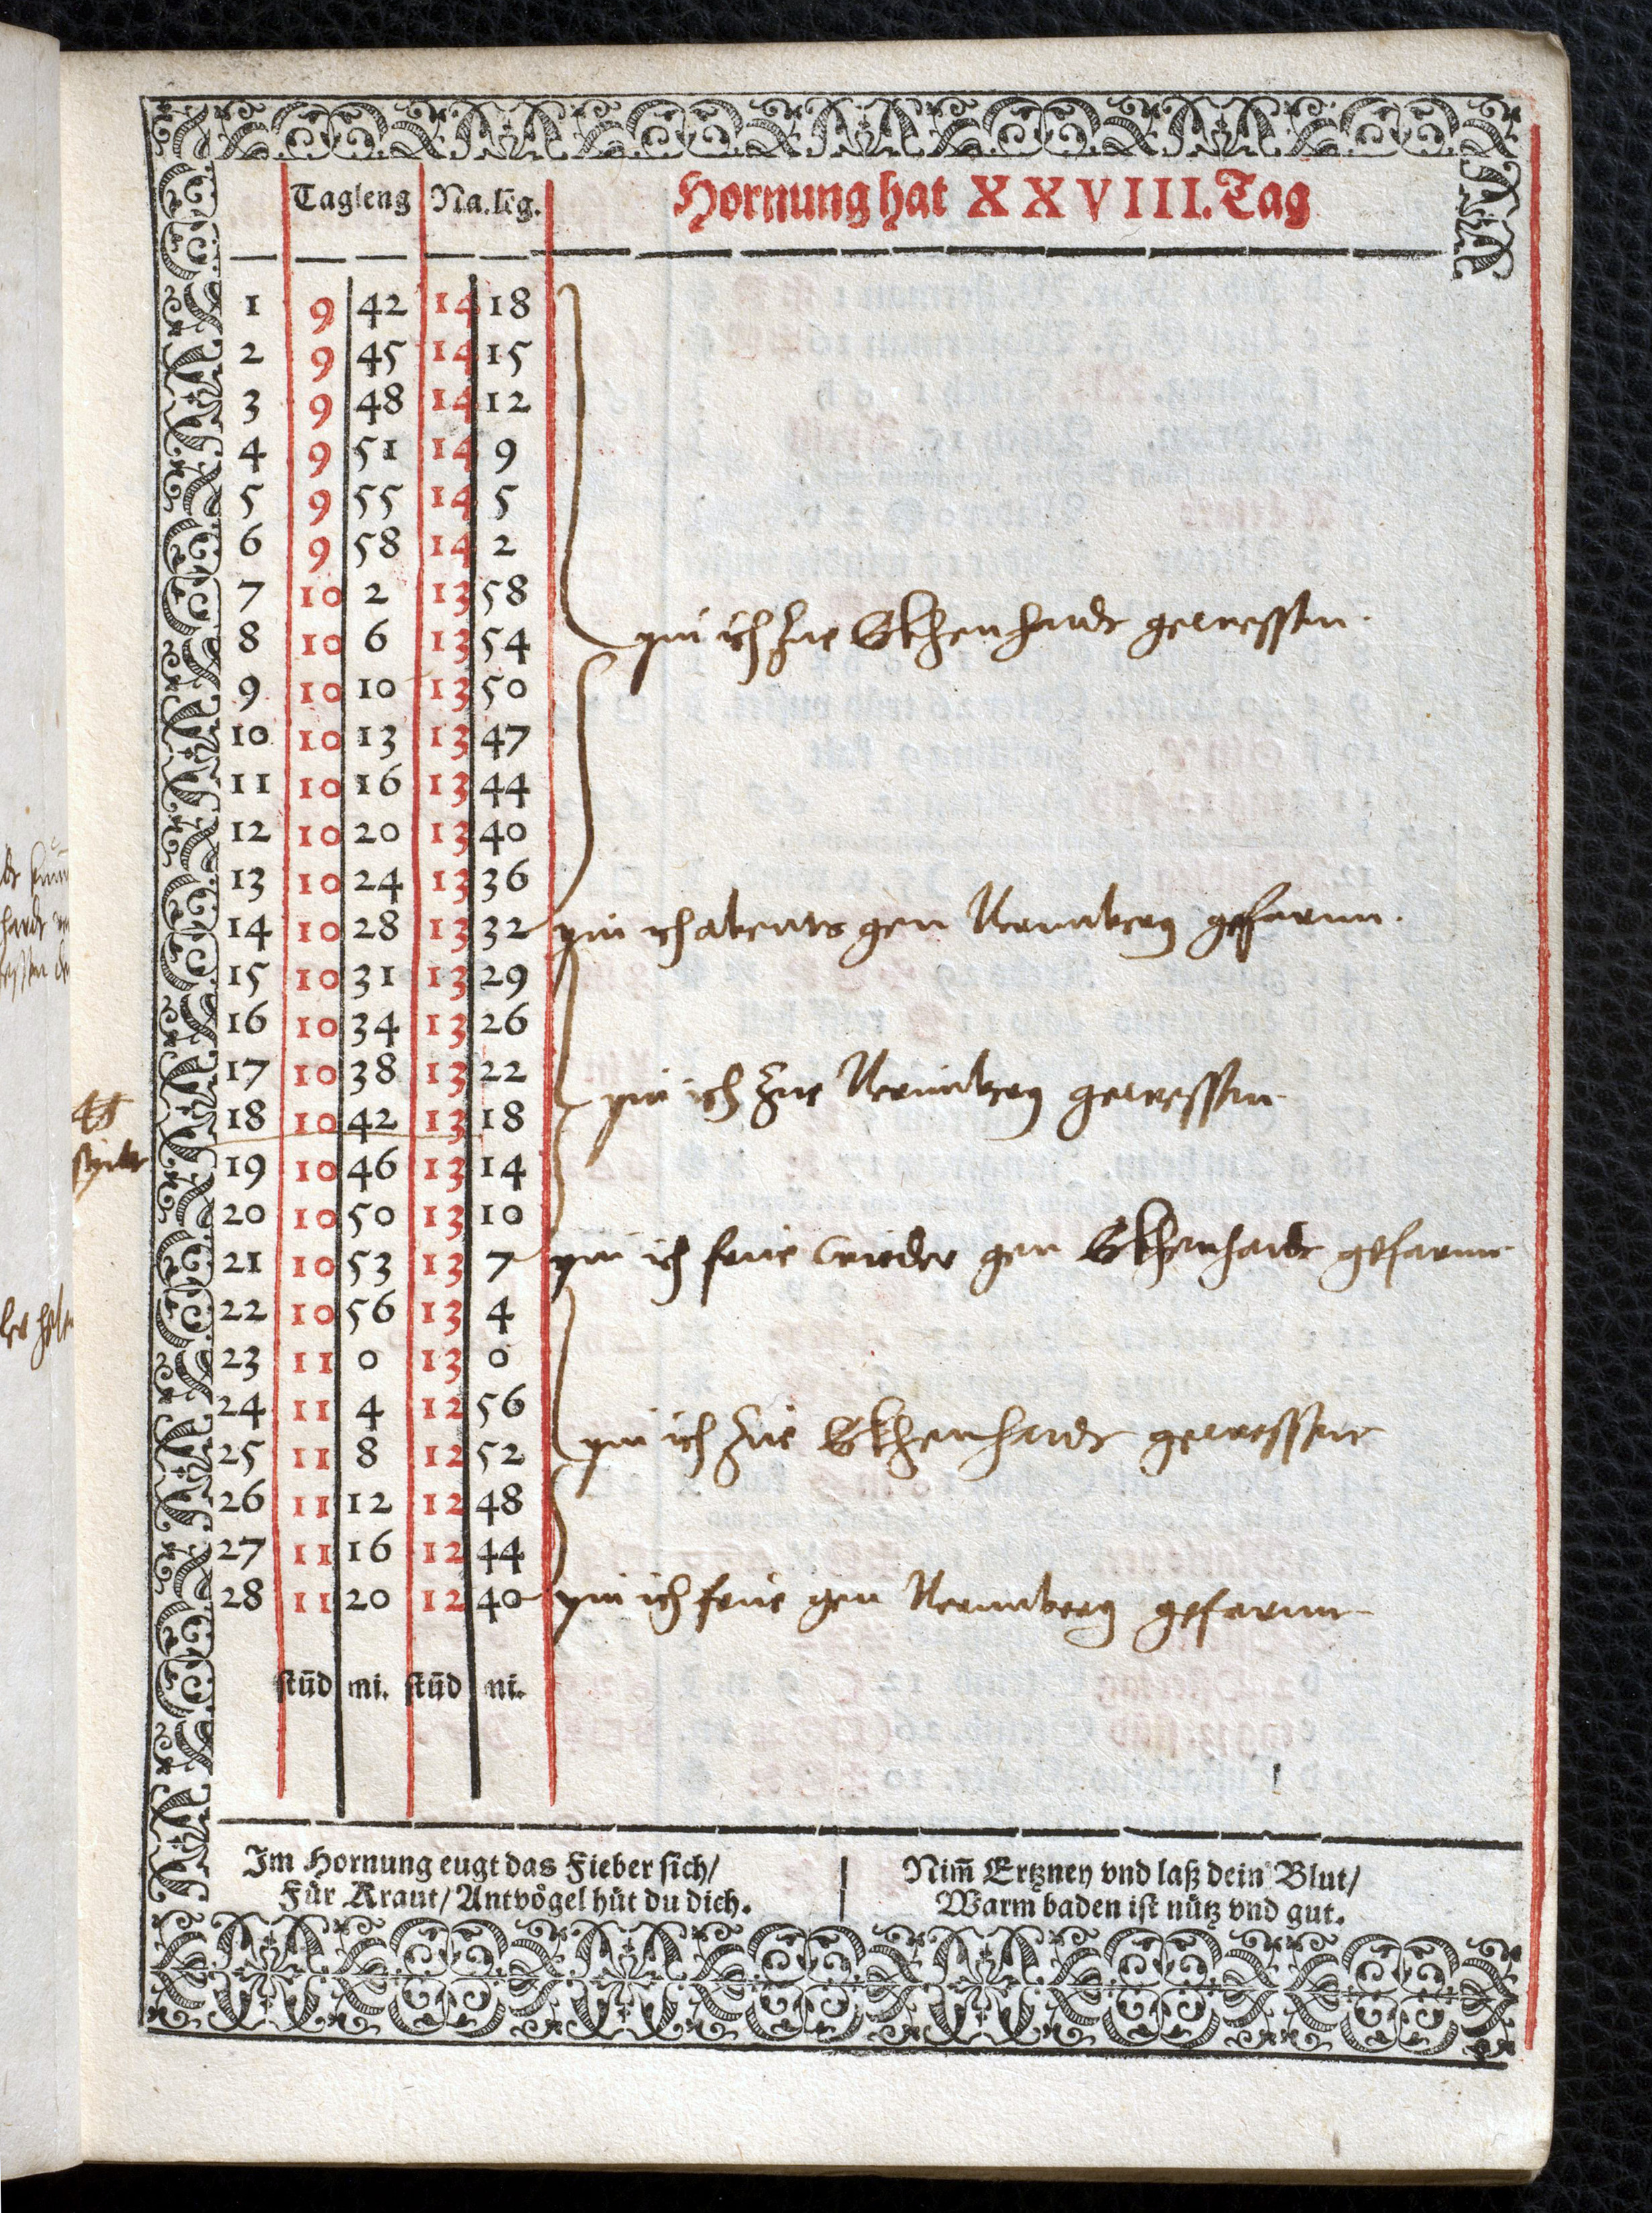 Tagleng Na.leg. Hornung hat XXVIII. Tag
1 9 42 14 18
2 9 45 14 15
3 9 48 14 12
4 9 51 14 9
5 9 55 14 5
6 9 58 14 2
7 10 2 13 58
pin ich zue Ekhenhaidt gewessen.
8 10 6 13 54
9 10 10 13 50
10 10 13 13 47
11 10 16 13 44
12 10 20 13 40
13 10 24 13 36
14 10 28 13 32 pin ich abents gen Nermberg gefarnn.
15 10 31 13 29
16 10 34 13 26
17 10 38 13 22
pin ich zue Nermberg gewessen
18 10 42 13 18
19 10 46 13 14
20 10 50 13 10
21 10 53 13 7 pin ich frue wieder gen Ekhenhaidt gefarnn
22 10 56 13 4
23 11 0 13 0
24 11 4 12 56
pin ich zue Ekhenhaidt gewessen
25 11 8 12 52
26 11 12 12 48
27 11 16 12 44
28 11 20 12 40 pin ich frue gen Nermberg gefarnn
stūd mi. stūd mi.
Im Hornung eugt das Fieber sich/
Für Kraut/ Antvögel hüt du dich.
Nim̄ Ertzney vnd laß dein Blut/
Warm baden ist nütz vnd gut.